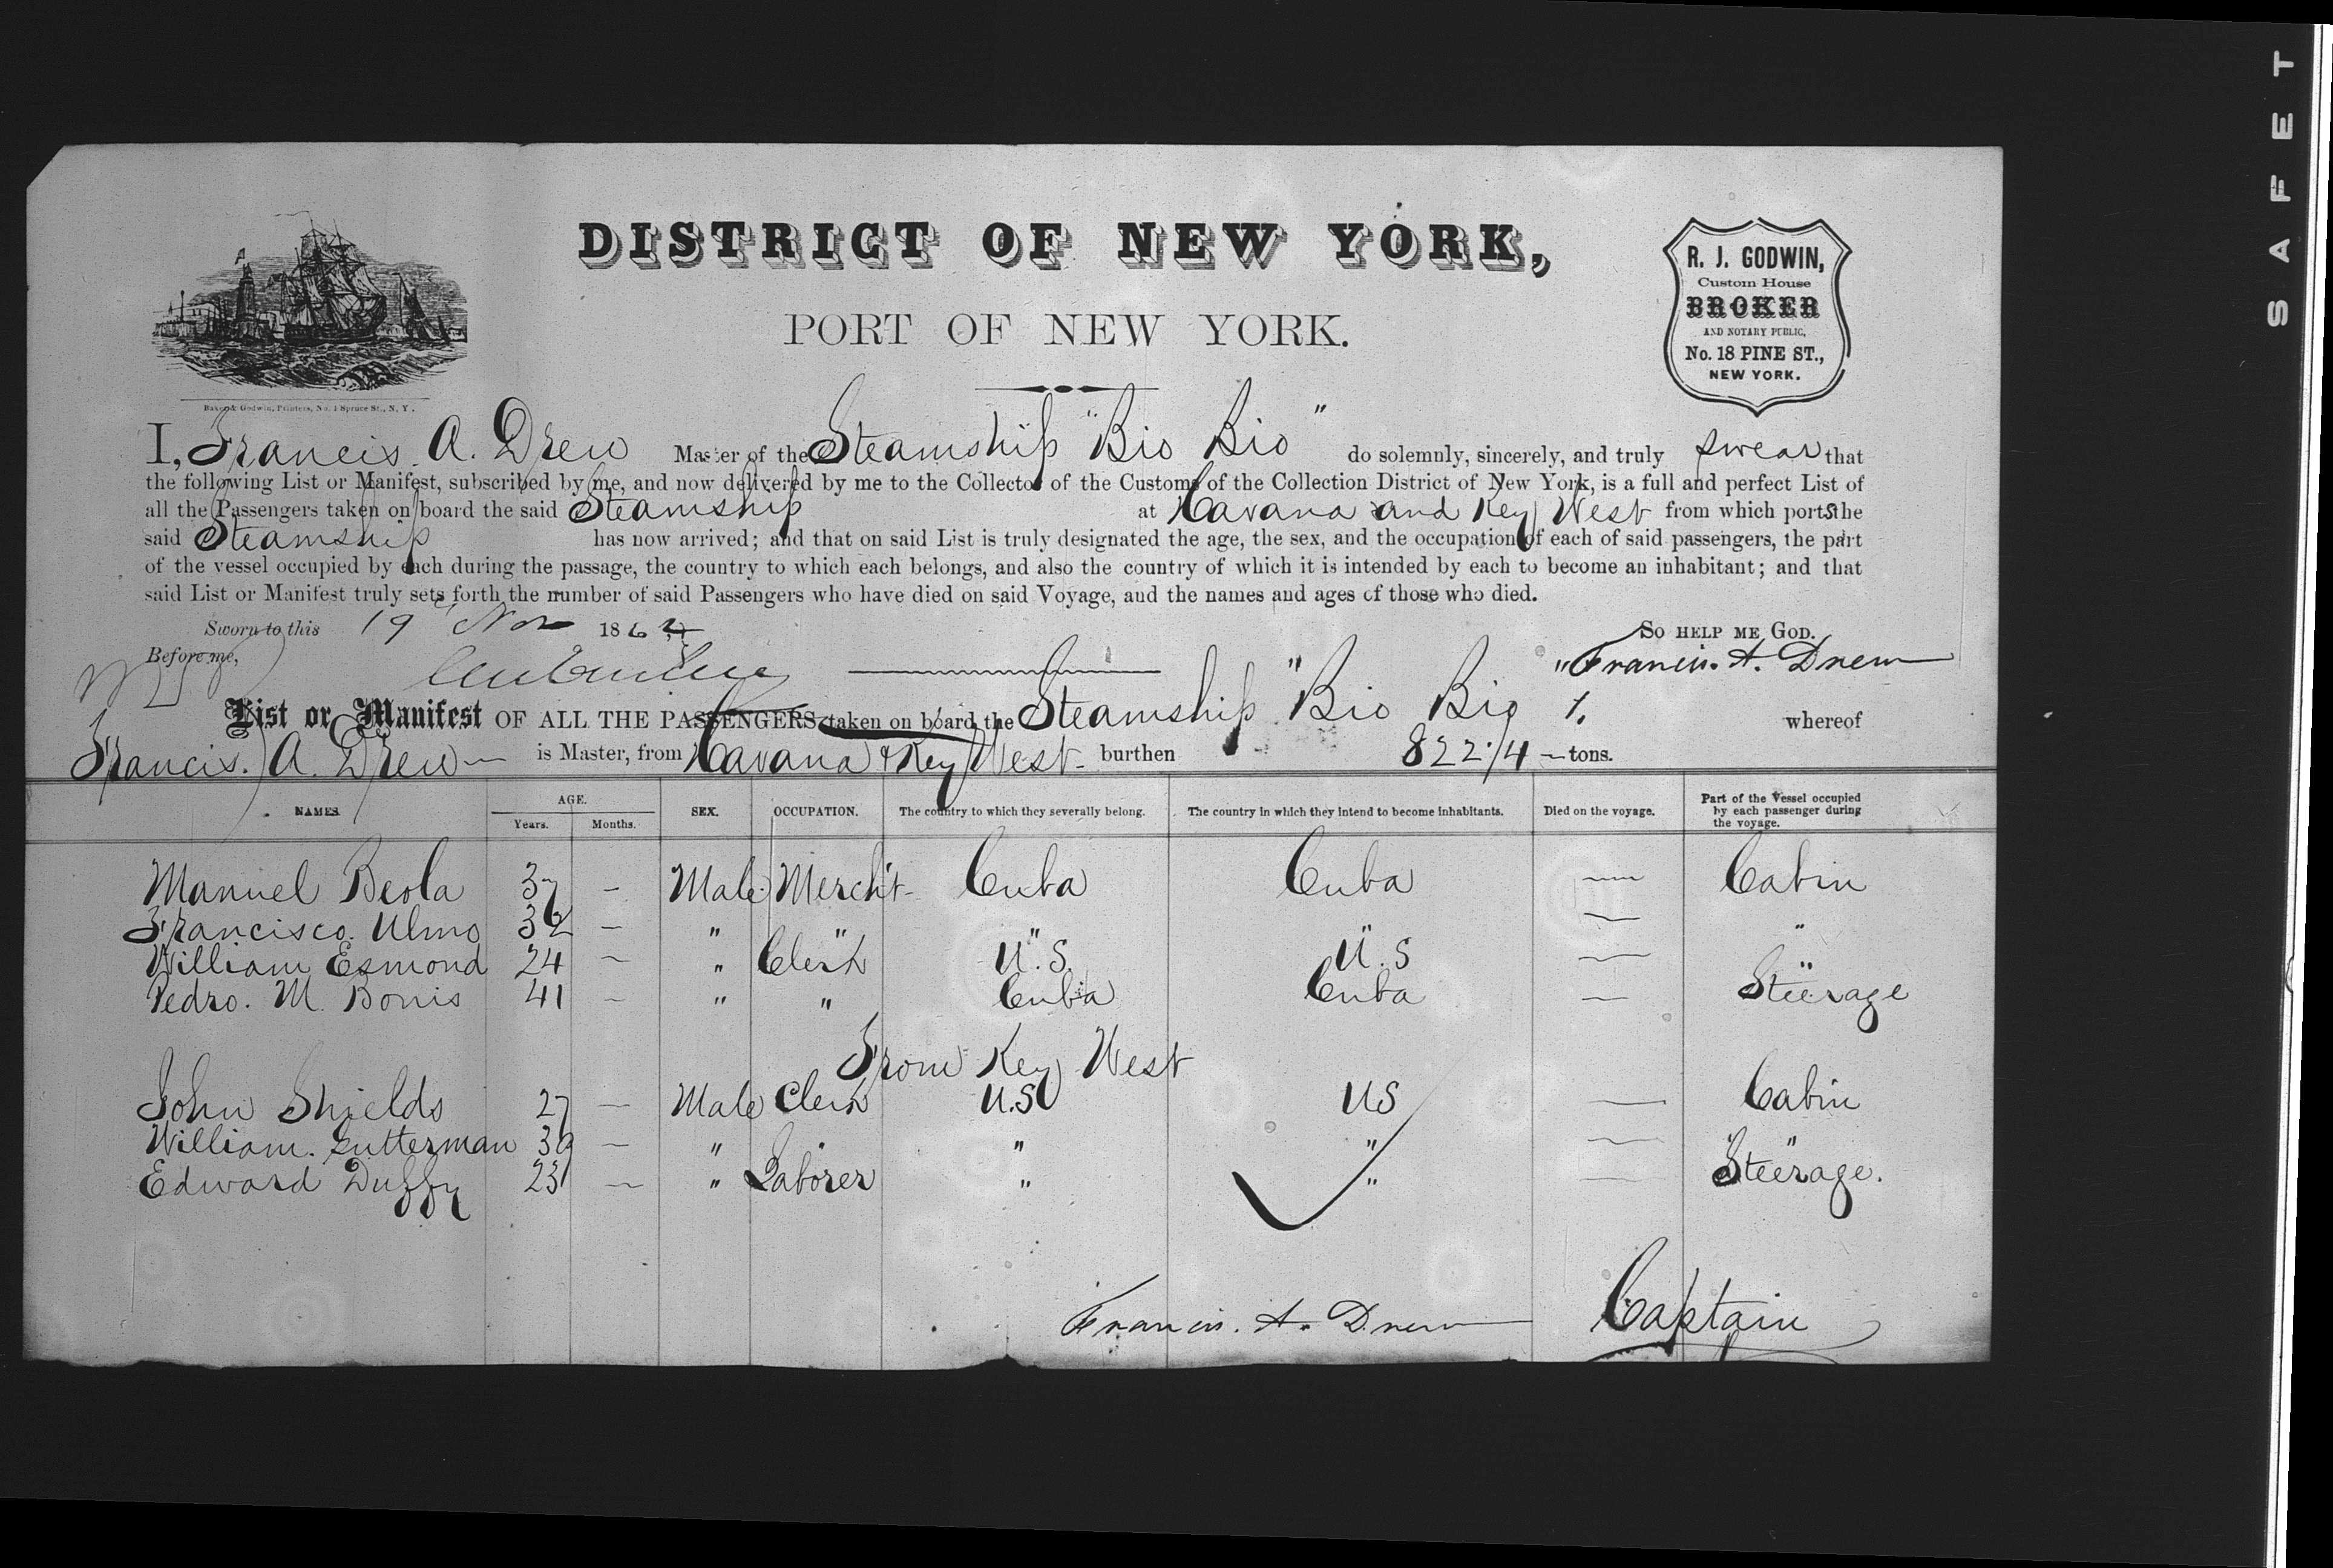 DISTRICT OF NEW YORK,
PORT OF NEW YORK.
R. J. GODWIN,
Custom House
BROKER
AND NOTARY PUBLIC,
No. 18 PINE ST.,
NEW YORK.
Baker & Godwin, Printers, No. 1 Spruce St., N. Y.
I, Francis. A. Drew Master of the Steamship "Bio Bio" do solemnly, sincerely, and truly swear that
the following List or Manifest, subscribed by me, and now delivered by me to the Collector of the Customs of the Collection District of New York, is a full and perfect List of
all the Passengers taken on board the said Steamship at Havana and Key West from which ports the
said Steamship has now arrived; and that on said List is truly designated the age, the sex, and the occupation of each of said passengers, the part
of the vessel occupied by each during the passage, the country to which each belongs, and also the country of which it is intended by each to become an inhabitant; and that
said List or Manifest truly sets forth the number of said Passengers who have died on said Voyage, and the names and ages of those who died.
Sworn to this 19 Nov 186
SO HELP ME GOD.
Before me,
Francis. A. Drew
List or Manifest OF ALL THE PASSENGERS taken on board the Steamship "Bio Bio". whereof
Francis. A. Drew — is Master, from Havana & Key West - burthen 822 /4 — tons.
NAMES AGE. Years. Months. SEX. OCCUPATION. The country to which they severally belong. The country in which they intend to become inhabitants. Died on the voyage. Part of the Vessel occupied by each passenger during the voyage.
Manuel Beola 37 — Male Mercht - Cuba Cuba — Cabin
Francisco. Ulmo 32 — " " " " — "
William Esmond 24 — " Clerk U.S. U.S — "
Pedro. M. Bonis 41 — " " Cuba Cuba — Steerage
From Key West
John Shields 27 — Male Clerk U.S US — Cabin
William. Gutterman 30 — " " " " — "
Edward Duffy 23 — " Laborer " " — Steerage.
Francis. A. Drew Captain
SAFET